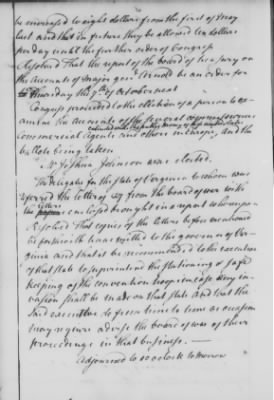 be increased to eight dollars from the first of may
last and that in future they be allowed ten dollars
per day until the further order of Congress
Resolved That the report of the board of treasury on
the accounts of major gen. Arnold be an order for
thursday the 7th of october next
Congress proceeded to the election of a person to ex-
amine the accounts of the several commissioners
commercial agents and others in Europe, and the
ballots being taken
Mr Joshua Johnson was elected.
The delegates for the state of Virginia to whom was
referred the letter of 27 from the board of war with
the letters enclosed brought in a report whereupon
Resolved That copies of the letters before mentioned
be forthwith transmitted to the governor of Vir-
ginia and that it be recommended to the executive
of that state to superintend the stationing & safe
keeping of the convention troops in case any in-
vasion shall be made on that state And that the
said executive do from time to time as occasion
may require advise the board of war of their
proceedings in that business. —
Adjourned to 10 o'clock to Morrow